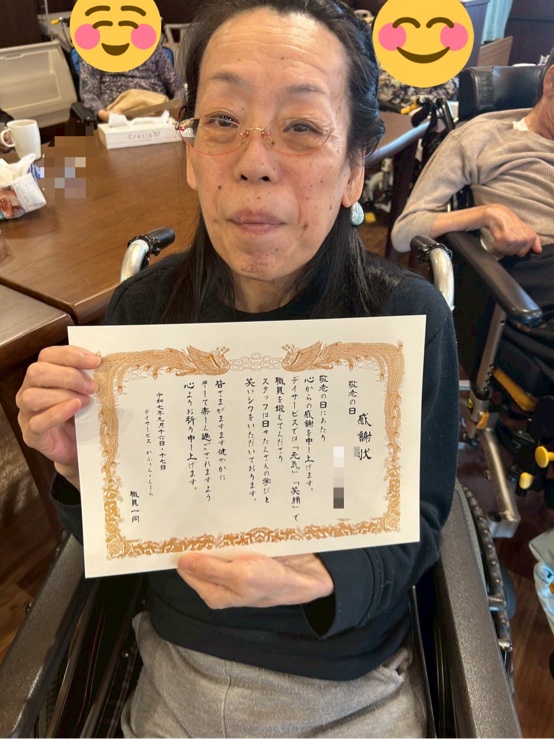 敬老の日 感謝状
敬老の日にあたり
心からの感謝を申し上げます。
デイサービスではつ「元気」「笑顔」で
職員を迎えてくださり
スタッフは日々たくさんの学びと
笑いジワをいただいております。
皆さまがますます健やかに
そして楽しく過ごされますよう
心よりお祈り申し上げます。
令和七年九月十六日〜十七日
デイサービス かふぇらってぃらいふ
職員一同